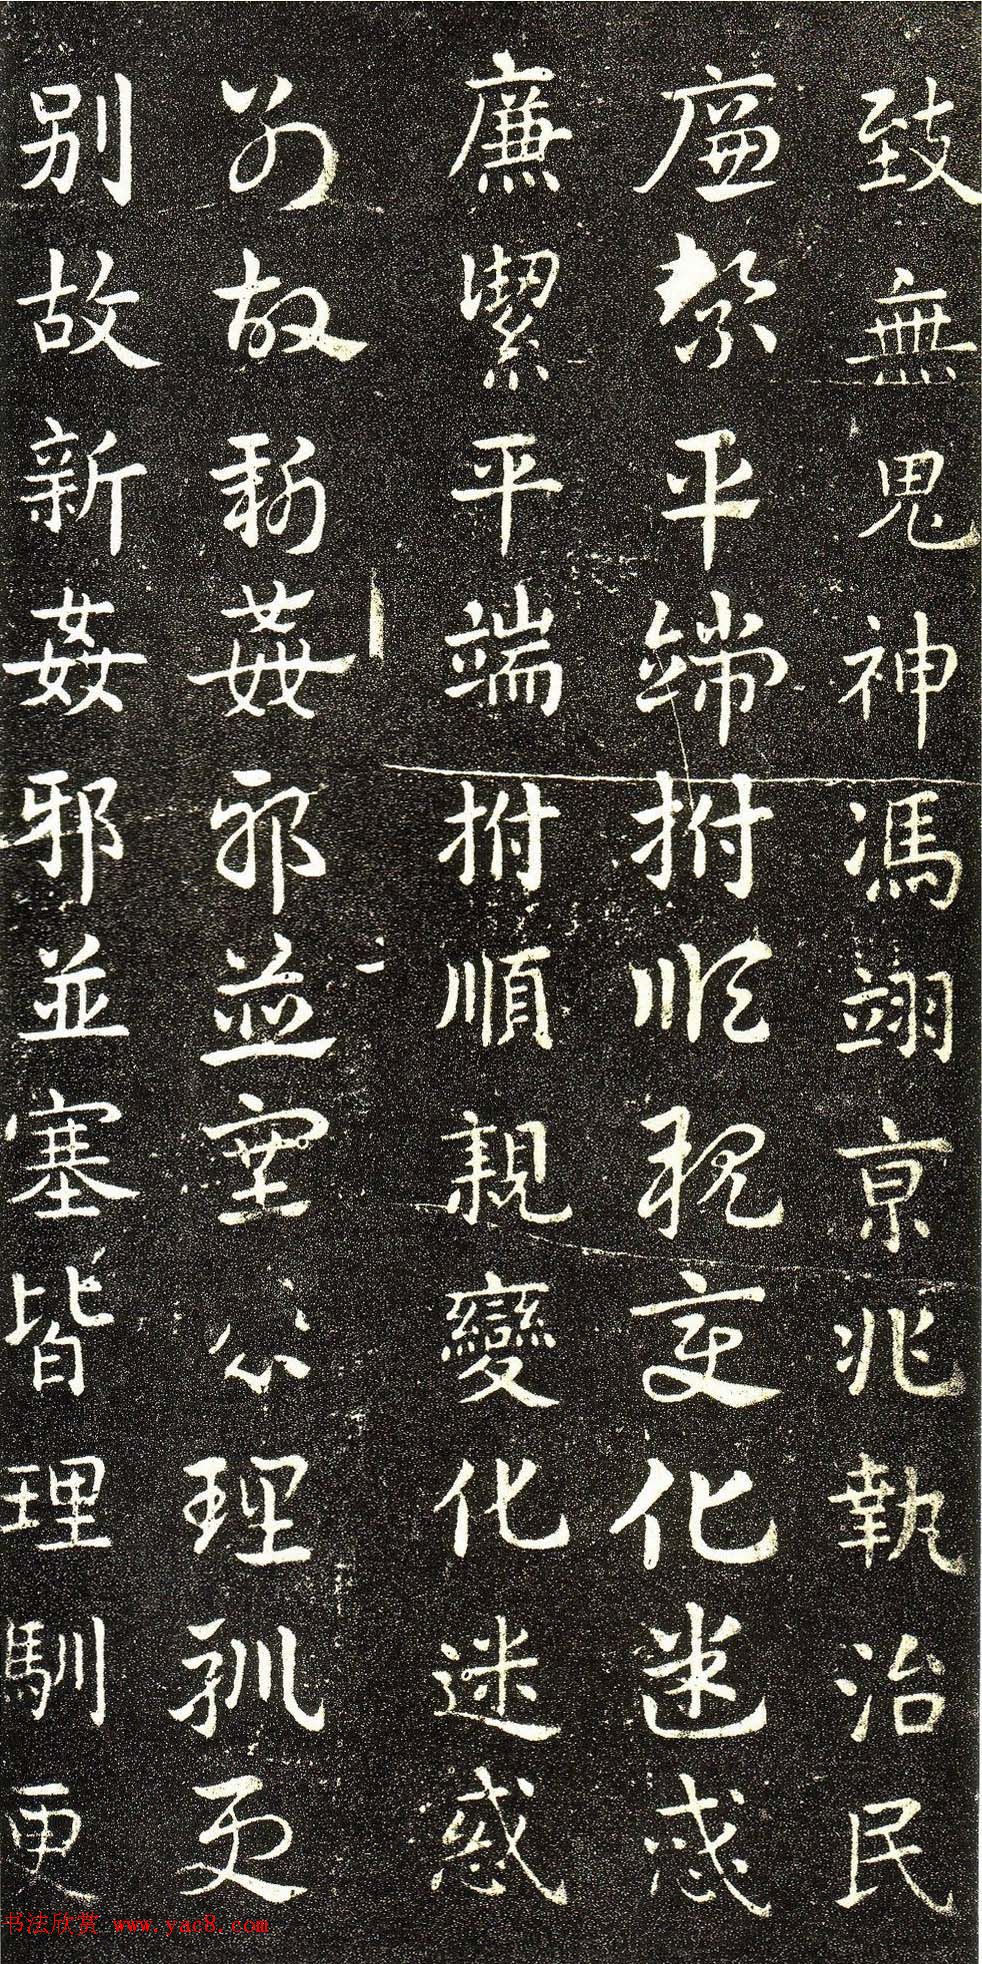 致無鬼神馮翊京兆執治民
廉絜平端拊順親變化迷惑
廉潔平端拊順親變化迷惑
別故新姦邪並塞皆理馴更
別故新姦邪並塞皆理馴更
书法欣赏 www.yac8.com